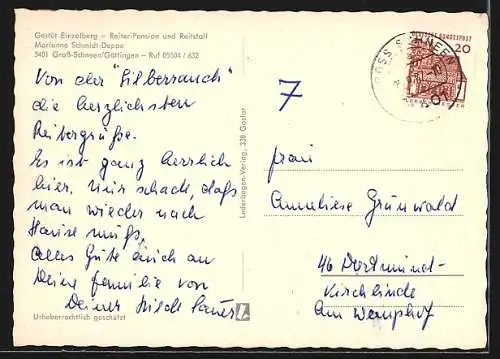 Gestüt-Einzelberg – Reiter-Pension und Reitstall
Marianne Schmidt-Deppe
3401 Groß-Schneen/Göttingen – Ruf 05504 / 632
Von der "Silberrauch"
die herzlichsten
Reitergrüße.
Es ist ganz herrlich
hier. Nur schade, daß
man wieder nach
Hause muß,
alles Gute auch an
Deine Familie von
Deiner
Urheberrechtlich geschützt
Lederbogen-Verlag, 338 Goslar
7
DEUTSCHE BUNDESPOST
20
GROSS SCHNEEN
Frau
Anneliese Grünwald
46 Dortmund-
Kirchlinde
Am